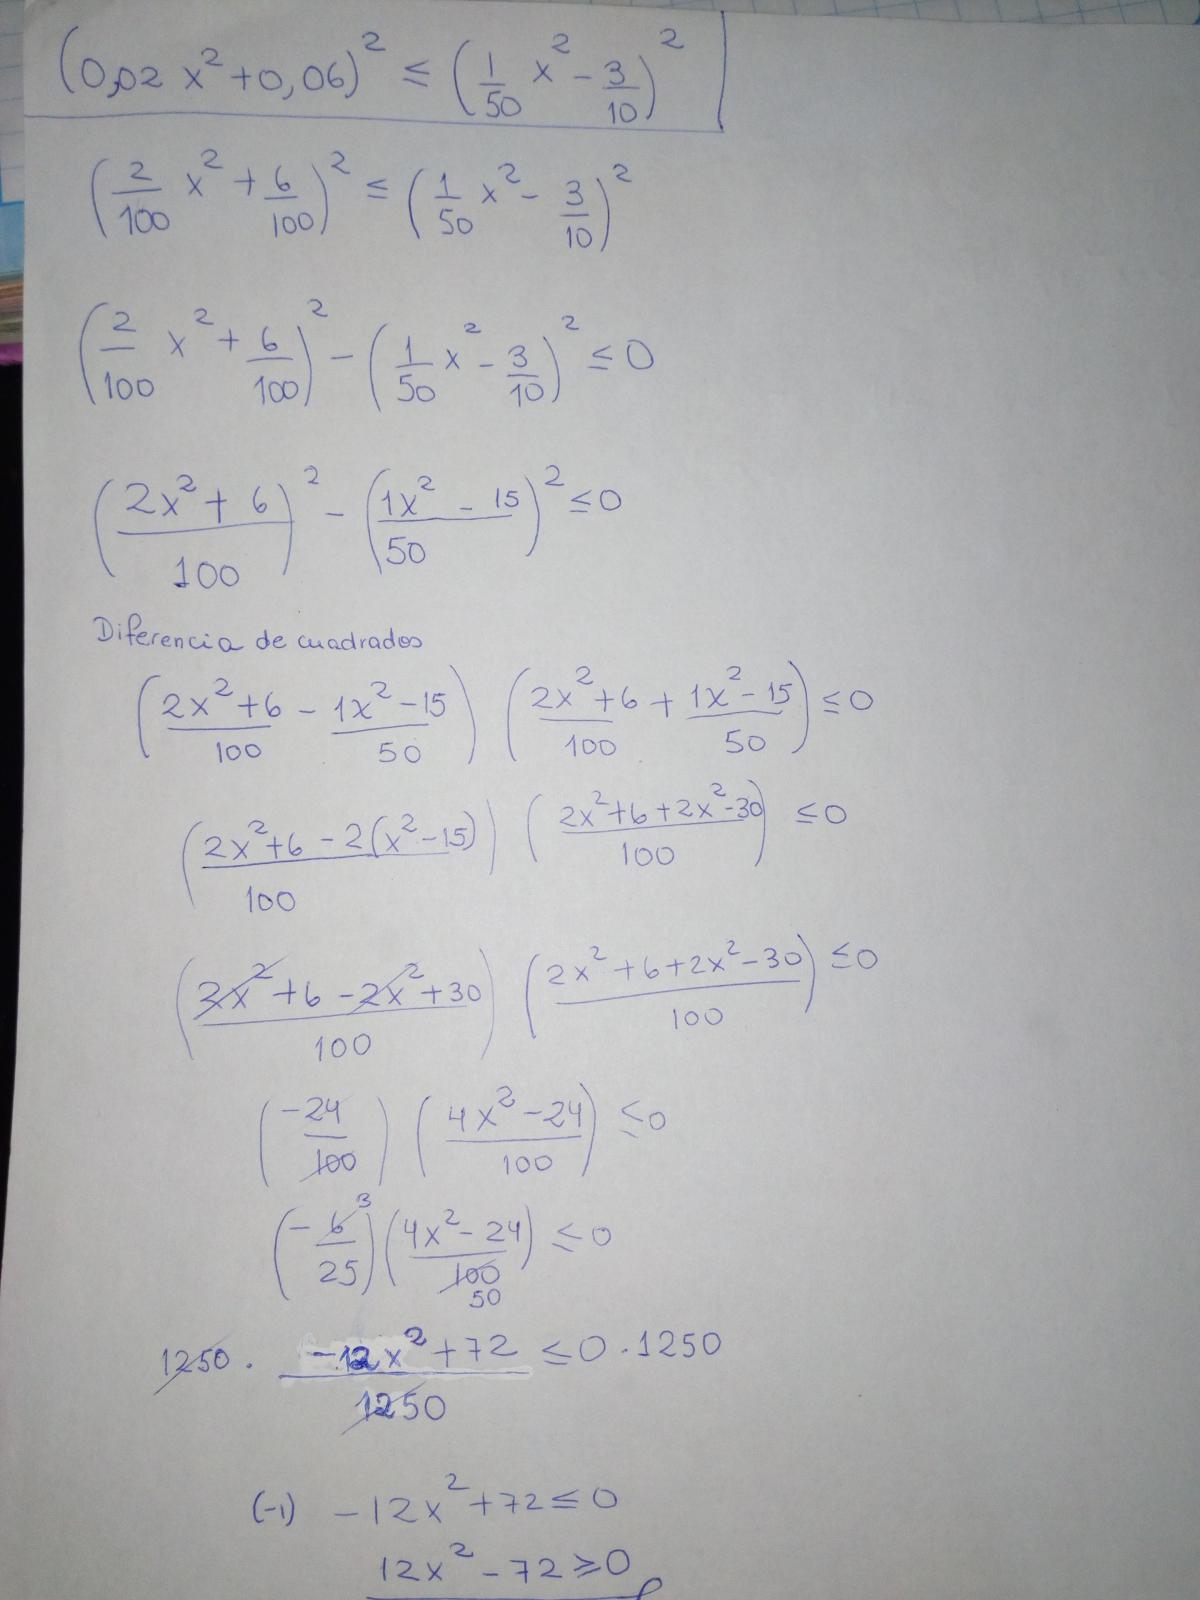 (0,02 x² + 0,06)² ≤ (1/50 x² - 3/10)²
(2/100 x² + 6/100)² ≤ (1/50 x² - 3/10)²
(2/100 x² + 6/100)² - (1/50 x² - 3/10)² ≤ 0
((2x² + 6)/100)² - ((1x² - 15)/50)² ≤ 0
Diferencia de cuadrados
((2x² + 6)/100 - (1x² - 15)/50) ((2x² + 6)/100 + (1x² - 15)/50) ≤ 0
((2x² + 6 - 2(x² - 15))/100) ((2x² + 6 + 2x² - 30)/100) ≤ 0
((2x² + 6 - 2x² + 30)/100) ((2x² + 6 + 2x² - 30)/100) ≤ 0
(-24/100) ((4x² - 24)/100) ≤ 0
(-6 3/25) ((4x² - 24)/100 50) ≤ 0
1250 · (-12x² + 72)/1250 ≤ 0 · 1250
(-1) -12x² + 72 ≤ 0
12x² - 72 ≥ 0